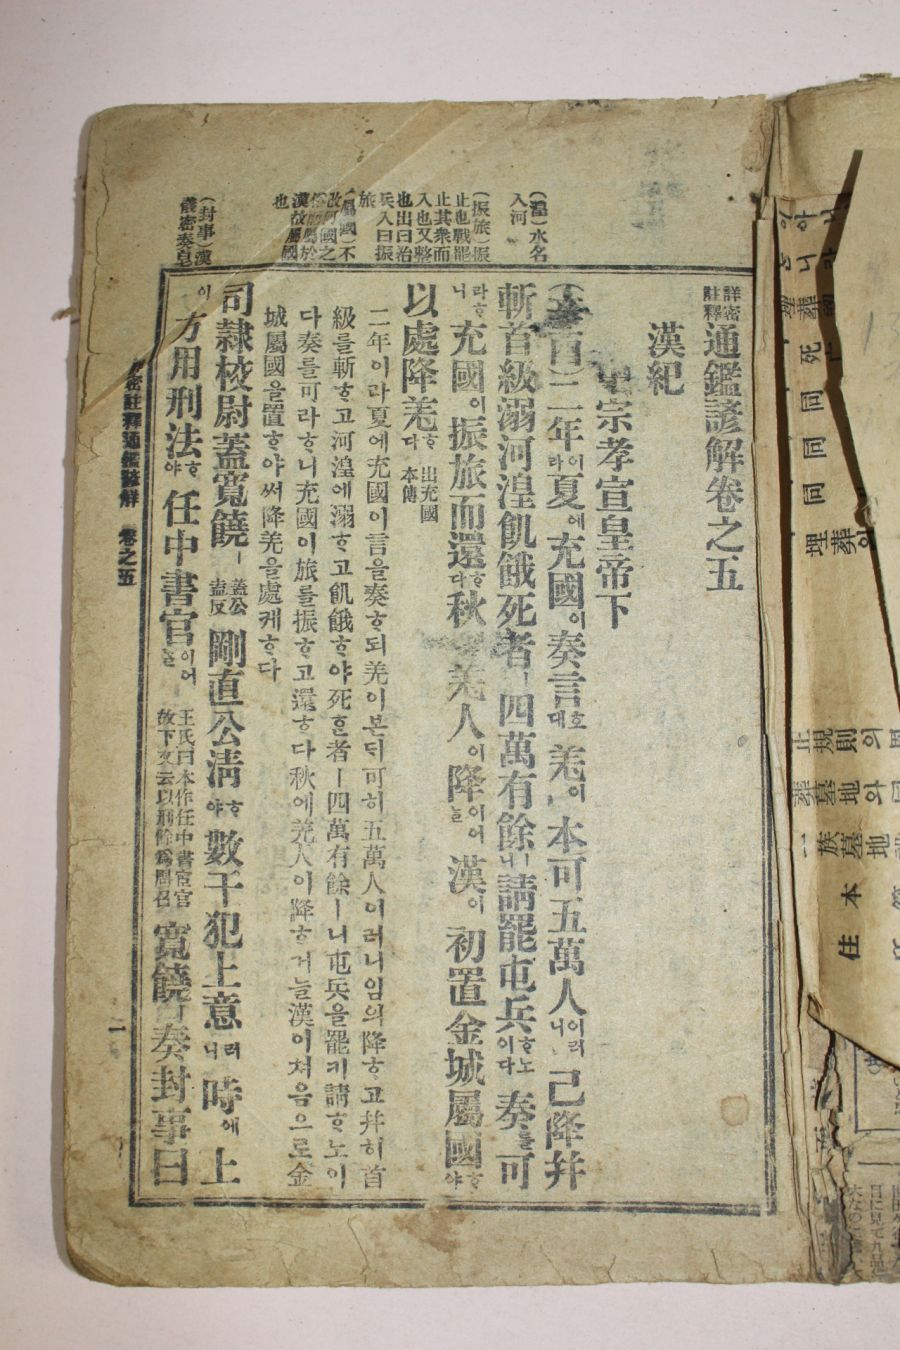 詳密註釋通鑑諺解卷之五
漢紀
中宗孝宣皇帝下
二年이라夏에充國이奏言호대羌이本可五萬人이러니已降幷
斬首級溺河湟飢餓死者ㅣ四萬有餘ㅣ니請罷屯兵하노이다奏를可
라하니充國이振旅而還하다秋에羌人이降이어늘漢이初置金城屬國하야
以處降羌하다出充國本傳
二年이라夏에充國이言을奏ᄒᆞ되羌이본ᄃᆡ可히五萬人이러니임의降ᄒᆞ고幷히首
級를斬ᄒᆞ고河湟에溺ᄒᆞ고飢餓ᄒᆞ야死ᄒᆞᆫ者ㅣ四萬有餘ㅣ니屯兵을罷키請ᄒᆞ노이
다奏를可라ᄒᆞ니充國이旅를振ᄒᆞ고還ᄒᆞ다秋에羌人이降ᄒᆞ거늘漢이처음으로金
城屬國을置ᄒᆞ야써降羌을處케ᄒᆞ다
司隷校尉蓋寬饒ㅣ蓋公盍反剛直公淸ᄒᆞ야數干犯上意러니時에上
이方用刑法ᄒᆞ야任中書官이어王氏曰本作任中書宦官故下文云以刑餘爲周召寬饒ㅣ奏封事曰
(湟)水名
入河
(振旅)振
止也戰罷
止其衆而
入也又整
也出曰治
兵入曰振
旅
(屬國)不
改何國之
俗而屬於
漢故屬國
也
(封事)漢
儀密奏皂
詳密註釋通鑑諺解 卷之五 一
埋葬의
止規則의
葬墓地와
一族墓地
住本